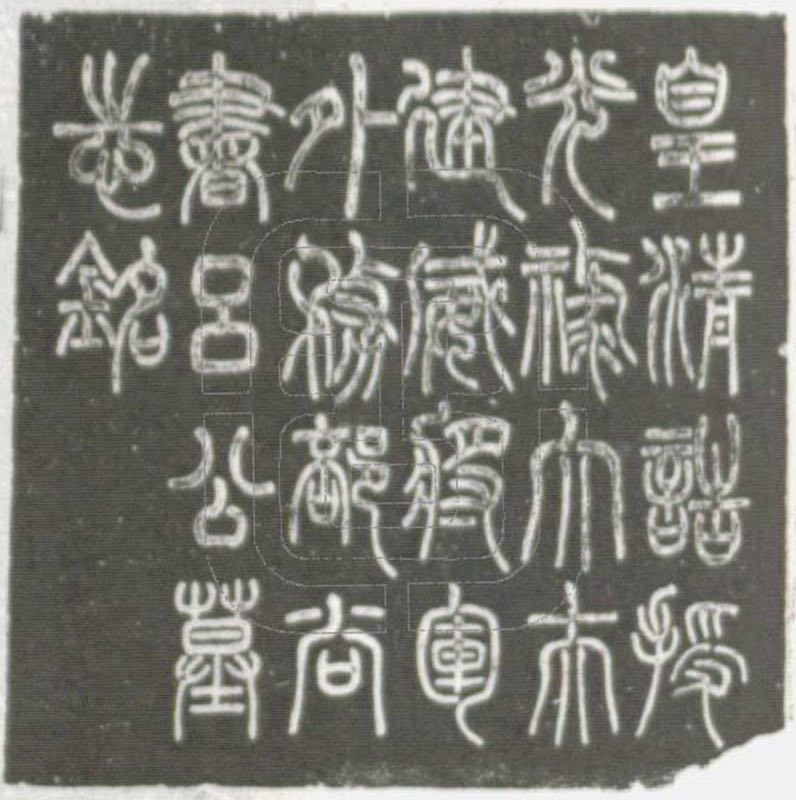 皇清誥授
光祿大夫
建威將軍
外務部尚
書呂公墓
志銘